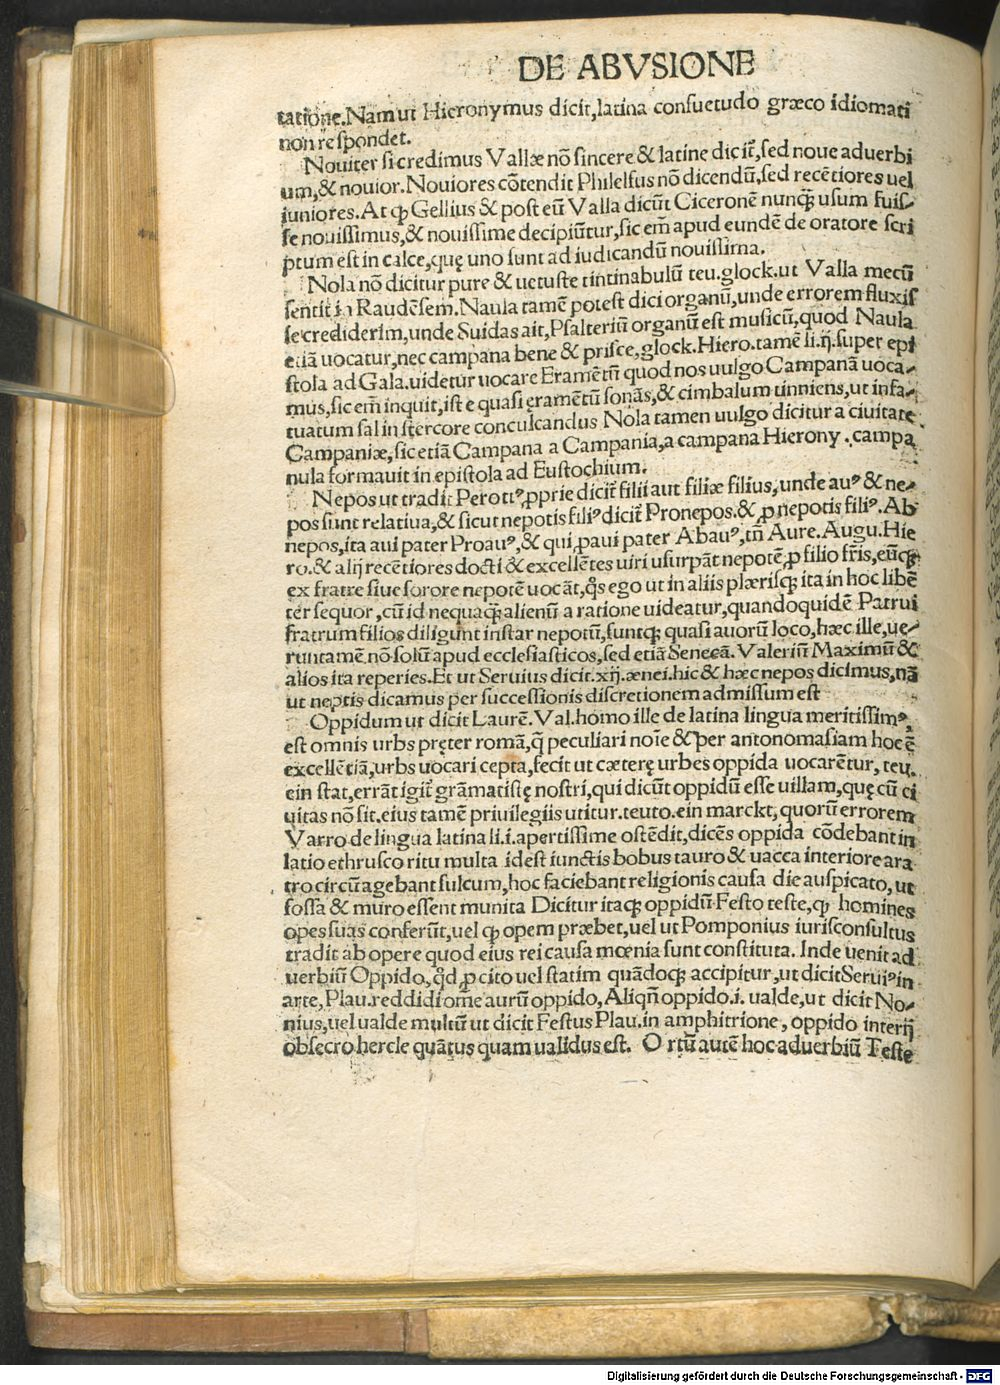 DE ABVSIONE
tatione.Nam ut Hieronymus dicit,latina consuetudo græco idiomati
non respondet.
Nouiter si credimus Vallæ nō sincere & latine dicit̃,sed noue aduerbi
um,& nouior.Nouiores cōtendit Philelfus nō dicendũ,sed recētiores uel
iuniores.At ꝙ Gellius & post eũ Valla dicũt Ciceronē nunꝗ̃ usum fuis⸗
se nouissimus,& nouissime decipiũtur,sic em̃ apud eundē de oratore scri
ptum est in calce,quę uno sunt ad iudicandũ nouissima.
Nola nō dicitur pure & uetuste tintinabulũ teu.glock.ut Valla mecũ
sentit in Raudēsem.Naula tamē potest dici organũ,unde errorem fluxis
se crediderim,unde Suidas ait,Psalteriũ organũ est musicũ,quod Naula
etiā uocatur,nec campana bene & prisce,glock.Hiero.tamē li.ij.super epi
stola ad Gala.uidetur uocare Eramētũ quod nos uulgo Campanā uoca⸗
mus,sic em̃ inquit,iste quasi ęramētũ sonās,& cimbalum tinniens,ut infa⸗
tuatum sal in stercore conculcandus Nola tamen uulgo dicitur a ciuitate
Campaniæ,sic etiā Campana a Campania,a campana Hierony.campa
nula formauit in epistola ad Eustochium.
Nepos ut tradit Perottꝰ,ꝓprie dicit̃ filii aut filiæ filius,unde auꝰ & ne⸗
pos sunt relatiua,& sicut nepotis filiꝰ dicit̃ Pronepos.& ꝓnepotis filiꝰ.Ab
nepos,ita aui pater Proauꝰ,& qui ꝓaui pater Abauꝰ,tñ Aure.Augu.Hie
ro.& alij recētiores docti & excellētes uiri usurpāt nepotē,ꝓ filio fr̃is,eũꝙ
ex fratre siue sorore nepotē uocāt,q̊s ego ut in aliis plærisꝗ ita in hoc libē
ter sequor,cũ id nequaꝗ̃ alienũ a ratione uideatur,quandoquidē Patrui
fratrum filios diligunt instar nepotũ,suntꝗ quasi auorũ loco,hæc ille,ue⸗
runtamē nō solũ apud ecclesiasticos,sed etiā Senecā.Valeriũ Maximũ &
alios ita reperies.Et ut Seruius dicit.xij.ænei.hic & hæc nepos dicimus,nā
ut neptis dicamus per successionis discretionem admissum est
Oppidum ut dicit Laurē.Val.homo ille de latina lingua meritissimꝰ,
est omnis urbs pręter romā,q̃ peculiari noīe & per antonomasiam hoc ē
excellētiā,urbs uocari cepta,fecit ut cæterę urbes oppida uocarētur,teu.
ein stat,errāt igit̃ grāmatistę nostri,qui dicũt oppidũ esse uillam,quę cũ ci
uitas nō sit,eius tamē priuilegiis utitur.teuto.ein marckt,quorũ errorem
Varro de lingua latina li.i.apertissime ostēdit,dicēs oppida cōdebant in
latio ethrusco ritu multa idest iunctis bobus tauro & uacca interiore ara
tro circũagebant sulcum,hoc faciebant religionis causa die auspicato,ut
fossa & muro essent munita Dicitur itaꝗ oppidũ Festo teste,ꝙ homines
opes suas conferũt,uel ꝙ opem præbet,uel ut Pomponius iurisconsultus
tradit ab opere quod eius rei causa mœnia sunt constituta.Inde uenit ad
uerbiũ Oppido,q̊d ꝓ cito uel statim quādoꝗ accipitur,ut dicit Seruiꝰ in
arte,Plau.reddidi om̃e aurũ oppido,Aliqñ oppido.i.ualde,ut dicit No⸗
nius,uel ualde multũ ut dicit Festus Plau.in amphitrione,oppido interij
obsecro hercle quātus quam ualidus est. Ortũ autē hoc aduerbiũ Teste
Digitalisierung gefördert durch die Deutsche Forschungsgemeinschaft - DFG